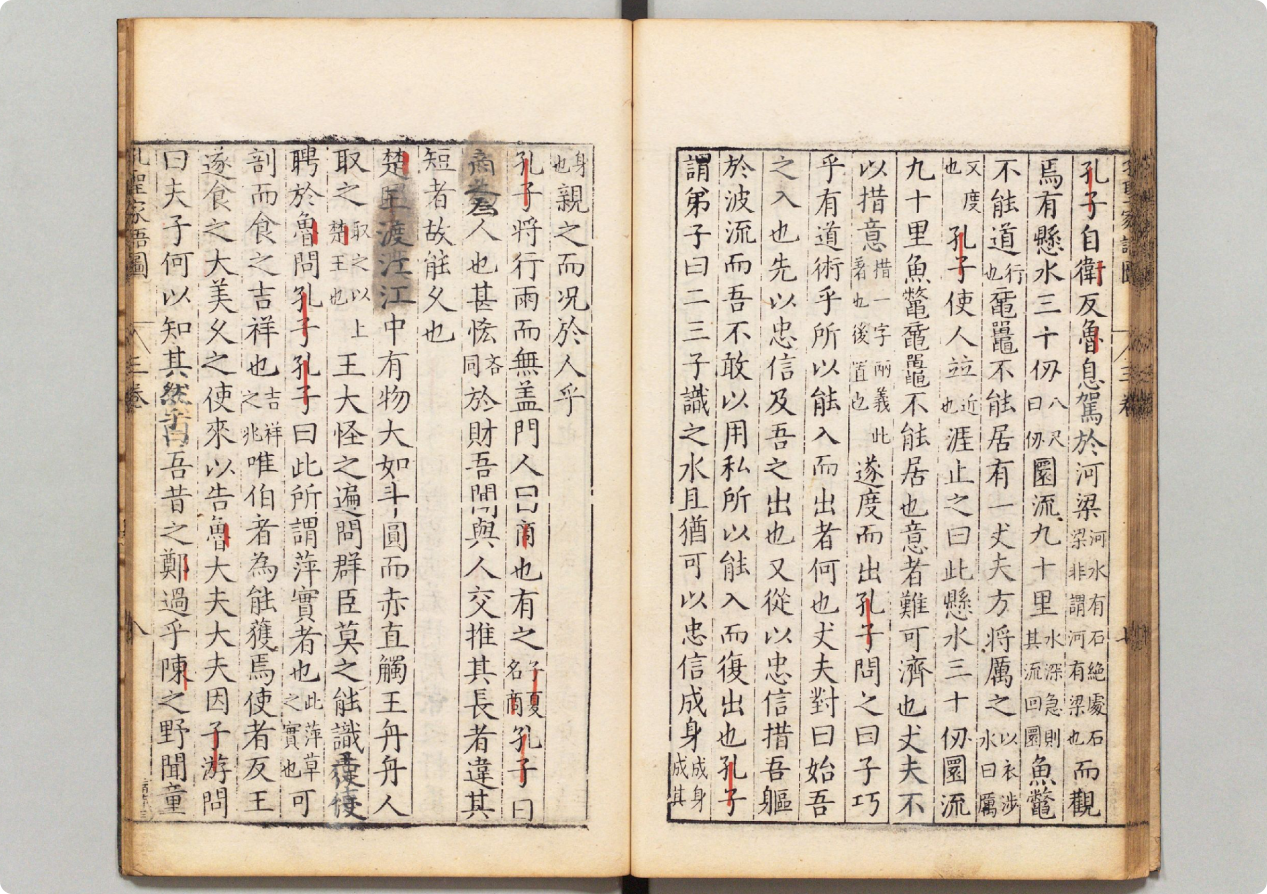 孔子自衛反魯息駕於河梁河水有石絶處石梁非謂河有梁也而觀
焉有懸水三十仞八尺曰仞圜流九十里水深急則其流回圜魚鼈
不能道行也黿鼉不能居有一丈夫方將厲之以衣涉水曰厲
又度也孔子使人竝近也涯止之曰此懸水三十仞圜流
九十里魚鼈黿鼉不能居也意者難可濟也丈夫不
以措意措一字兩義此著也後置也遂度而出孔子問之曰子巧
乎有道術乎所以能入而出者何也丈夫對曰始吾
之入也先以忠信及吾之出也又從以忠信措吾軀
於波流而吾不敢以用私所以能入而復出也孔子
謂弟子曰二三子識之水且猶可以忠信成身成身成其
身也親之而况於人乎
孔子將行雨而無盖門人曰商也有之子夏名商孔子曰
商之為人也甚恡吝同於財吾聞與人交推其長者違其
短者故能久也
楚王渡江江中有物大如斗圓而赤直觸王舟舟人
取之取之以上楚王也王大怪之遍問群臣莫之能識使
聘於魯問孔子孔子曰此所謂萍實者也此萍草之實也可
剖而食之吉祥也吉祥之兆唯伯者為能獲焉使者反王
遂食之大美久之使來以告魯大夫大夫因子游問
曰夫子何以知其然乎曰吾昔之鄭過乎陳之野聞童
孔聖家語圖 三卷 八